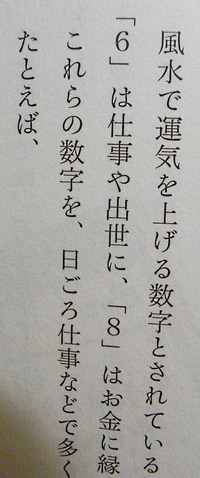 風水で運気を上げる数字とされている
「6」は仕事や出世に、「8」はお金に縁
これらの数字を、日ごろ仕事などで多く
たとえば、